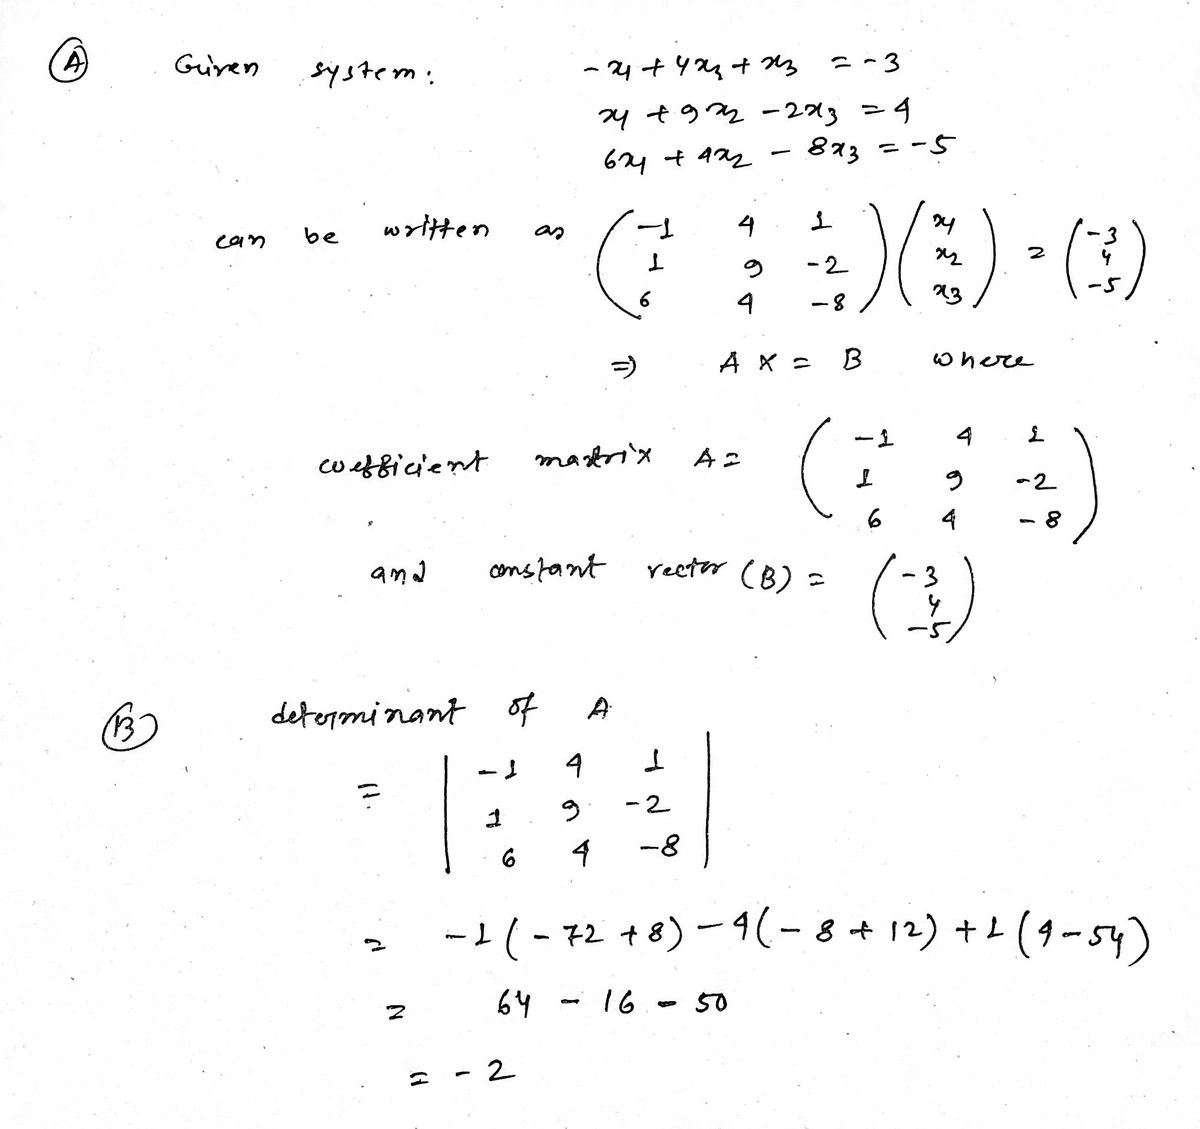 (A) Given system: -x₁ + 4x₂ + x₃ = -3
x₁ + 9x₂ - 2x₃ = 4
6x₁ + 4x₂ - 8x₃ = -5
can be written as (-1 4 1; 1 9 -2; 6 4 -8) (x₁; x₂; x₃) = (-3; 4; -5)
⇒ A X = B where
coefficient matrix A = (-1 4 1; 1 9 -2; 6 4 -8)
and constant vector (B) = (-3; 4; -5)
(B) determinant of A
= | -1 4 1; 1 9 -2; 6 4 -8 |
= -1(-72 + 8) - 4(-8 + 12) + 1(4 - 54)
= 64 - 16 - 50
= -2